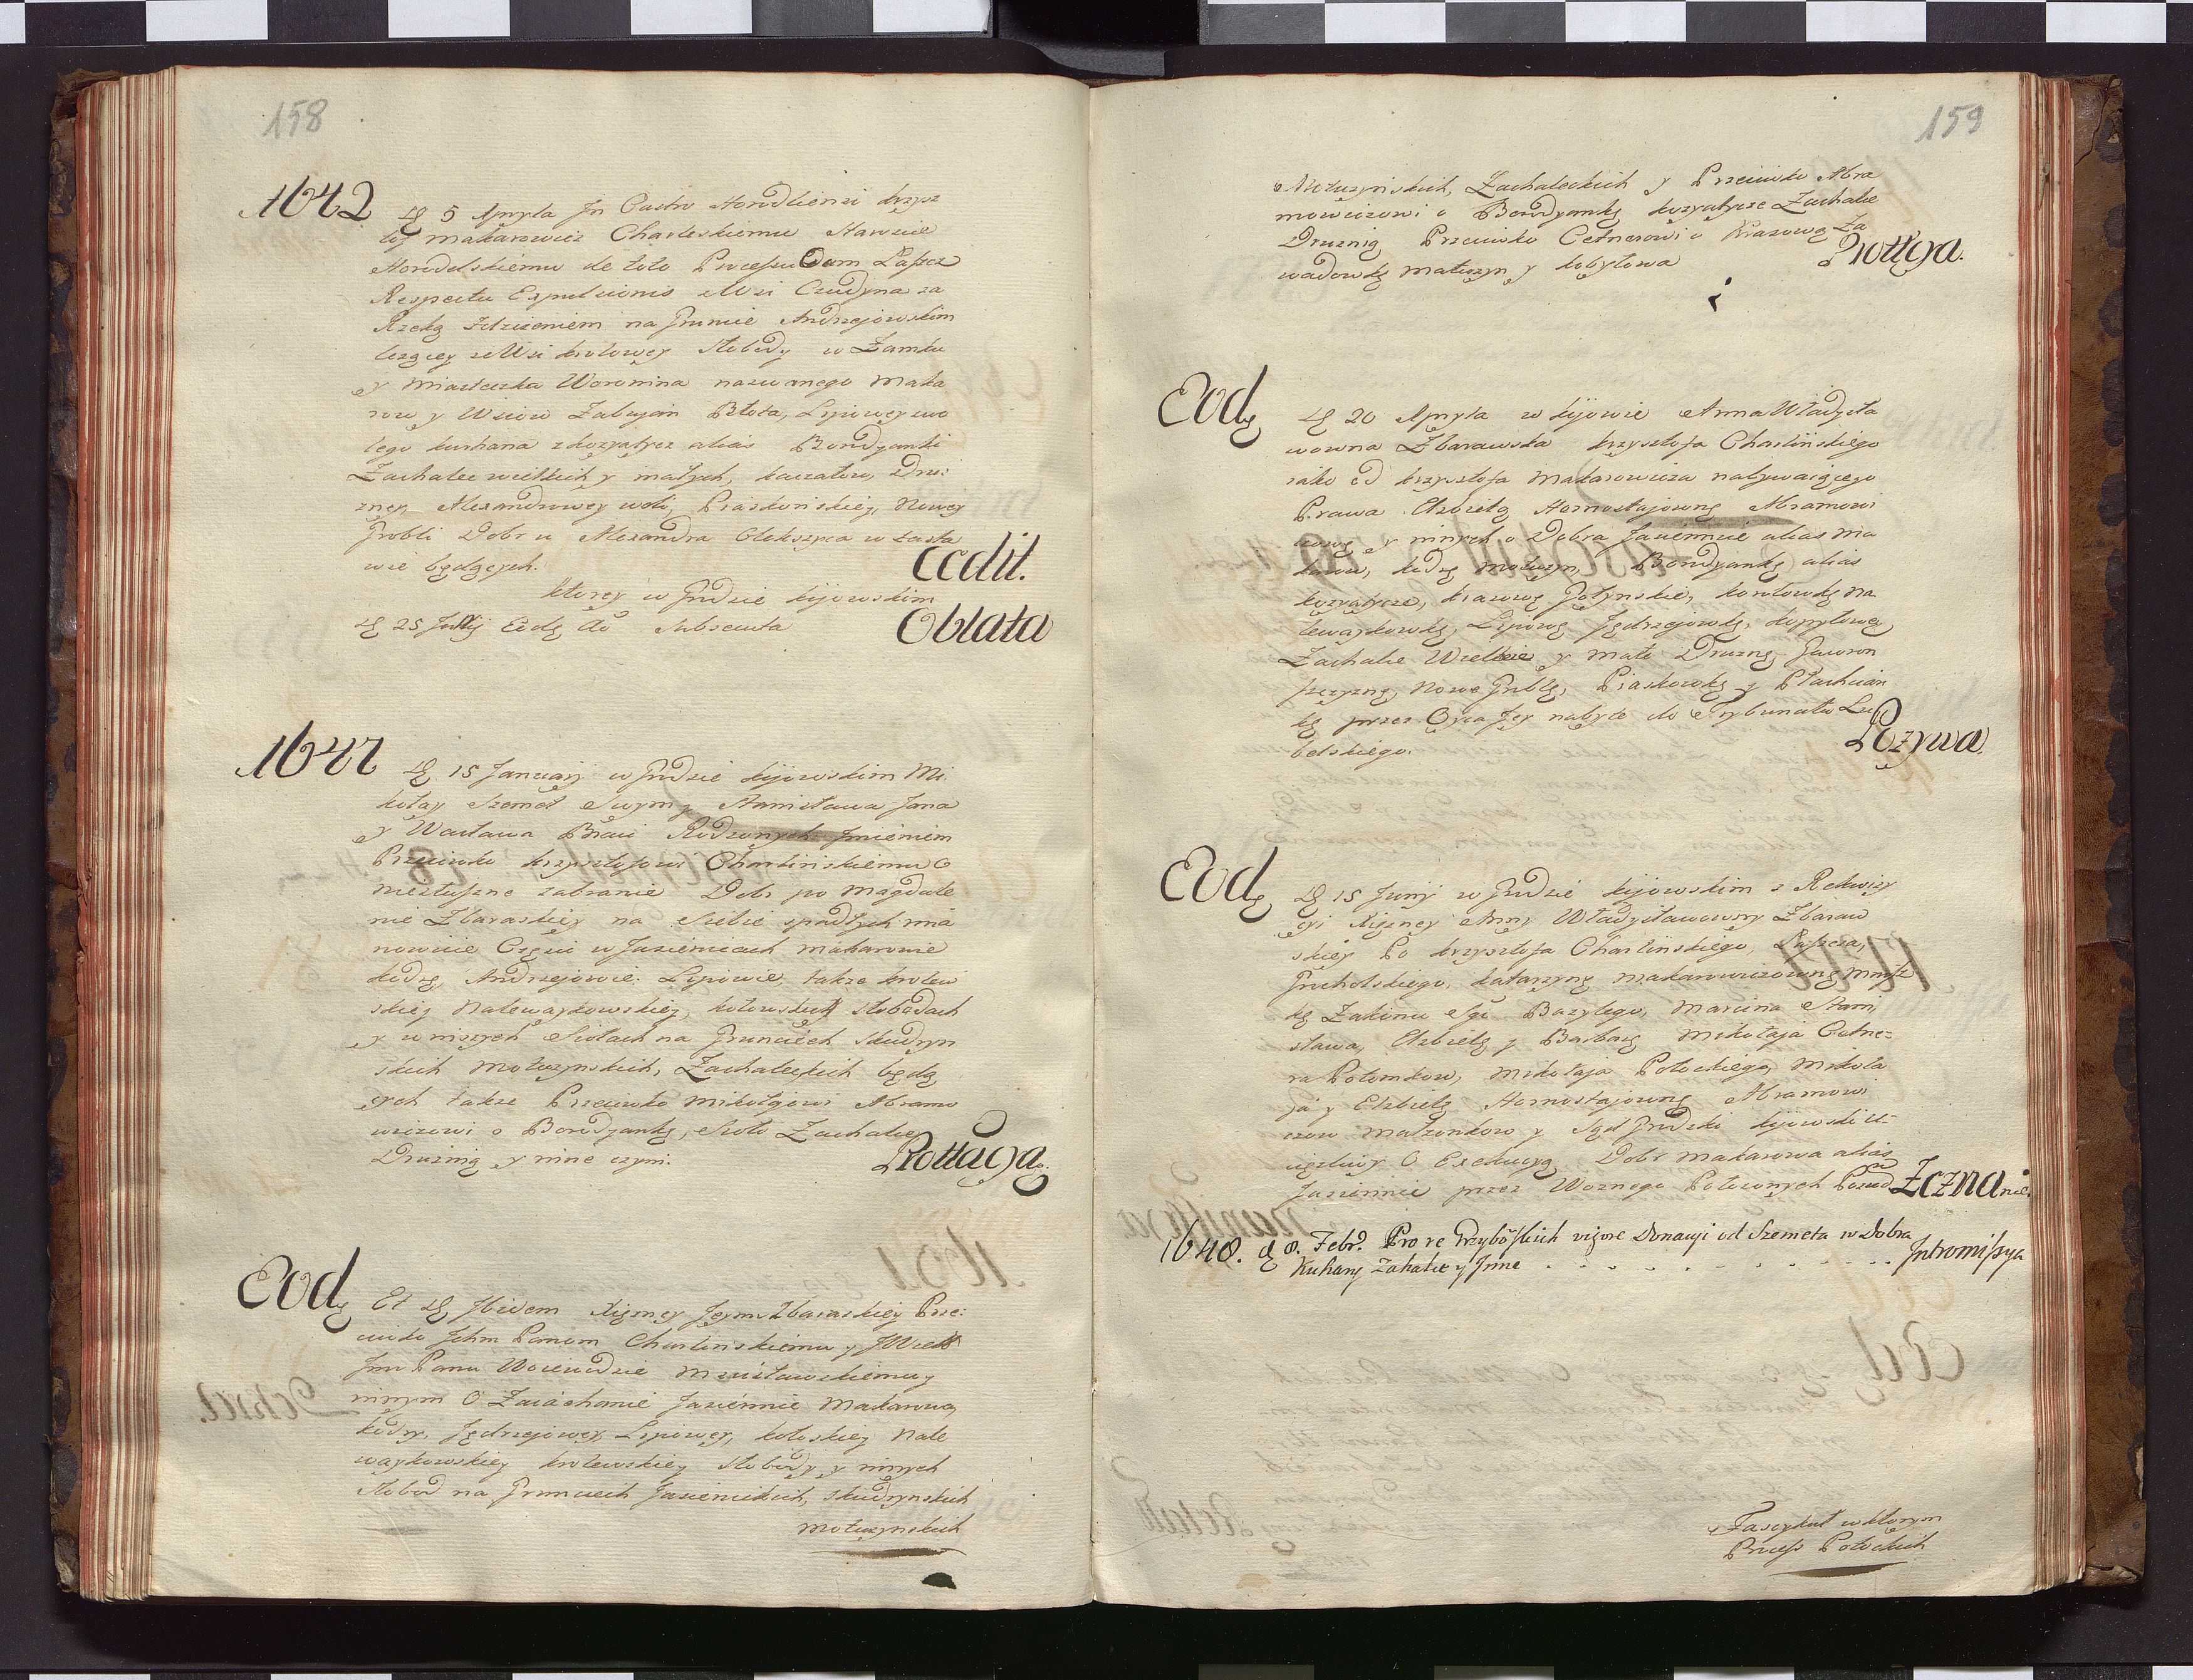 158
1642 D 5 Apryla In Castro Horodliensi krzysz
tof Makarowicz Charleskiemu Staroście
Horodelskiemu de toto Processu Dom Laszcz
Respectu Expulsionis z Wsi Czudyna za
Rzeką Zdzizeniem na Gruncie Andrzejowskim
lezącey ze Wsi krolowey Slobody w Zamku
y Miasteczka Woronina nazwanego Maka
row y Wsiow Zabujan Błota, Lipowey wo
lego kuchana z kozyatycz alias Borodzanki
Zachalec wielkich y małych, kaczałow, Dru:
zney, Alexandrowey woli, Piaskowskiey, Nowey
Grobli Dobr u Alexandra Olekszyca w zasta
wie będących. Cedit.
ktorey w Grodzie kijowskim
D 25 Julij Eodg Ao Subsecuta Oblata
1644 D 15 Januarij w Grodzie kijowskim Mi
kołay Szemet Swym y Stanisława Jana
y Wacława Braci Rodzonych Imieniem
Przeciwko krzysztofowi Charlińskiemu O
niesłuszne zabranie Dobr po Magdale
nie Zbaraskiey na Siebie spadłych mia
nowicie Części w Jasiemcach Makarowie
kodrę, Andrzejowie. Lipowie, także krolew
skiey Nalewaykowskiey, kołowskiey Slobodach
y w inszych Siołach na Grunciech Skudryn
skich Motyzynskich, Zachaleckich będą
cych także Przeciwko Mikołajowi Abramo
wiczowi o Borodzankę, Sioło Zachalce
Druznię y inne czyni. Prottacya.
Eodg Et D Ibidem Xiężney Jeym Zbaraskiey Prze:
ciwko Ichm Panom Charlinskiemu y JWiel
Jmu Panu Woiewodzie Mscisławskiemu y
innym O Zaiáchanie Jasiennie Makarowa,
kodry, Jędrzejowey, Lipowey, kołoskiey Nale
waykowskiey krolewskiey Slobody y innych
Słobod na Gruntach Jasienickich, Skudrynskich
Motyzynskich
159
Motyzyńskich, Zachaleckich y Przeciwko Abra
mowiczowi o Borodyankę kozyatycze Zachalce
Druznią Przeciwko Cetnerowi o Krasową Za
wadowkę Matyzyn y kobyłowa Prottcya.
Eodg D 20 Apryla w kijowie Anna Władysła
wowna Zbarawska krzysztofa Charlińskiego
iako od krzysztofa Makarowicza nabywaiącego
Prawa Elzbietę Hornostajowną Abramowi
czową y innych o Dobra Jasiennice alias Ma
karow, kodrę Motyzyn, Borodyankę alias
kozyatycze, krasową Gołynskie, korołowkę Na
lewaykowkę, Lipowę Jędrzejowkę, kopyłowę
Zachalce Wielkie y małe Druznę Gawron
szczyznę, Nowe Groblę, Piaskowkę y Płachcian
kę przez Oyca Jey nabyte do Trybunału Lu
belskiego. Pozywa
Eodg D 15 Junij w Grodzie kijowskim z Rekwizy
cyi Xiężney Anny Władysławowny Zbaraw
skiey Po krzysztofa Charlińskiego, Laszcza,
Grocholskiego, katarzynę Makarowiczownę Mnisz
kę Zakonu Sgo Bazylego, Marcina Stani,
sława, Elzbietę y Barbarę Mikołaja Cetne:
ra Potomkow, Mikołaja Potockiego, Mikoła
ja y Elzbietę Hornostajownę Abramowi
czow Małzonkow y Sąd Grodzki kijowski U-
rzędowy O Exekucyą Dobr Makarowa alias
Jasiennie przez Woznego Połozonych Pozwo Zczna nie.
1648. d 8. Febr. Pro re Przyborskich vigore Donacyi od Szemeta w Dobra
Kuhary Zahalce y Inne . . . . . . . . . . Intromissya
Fascykuł w ktorym
Process Potockich